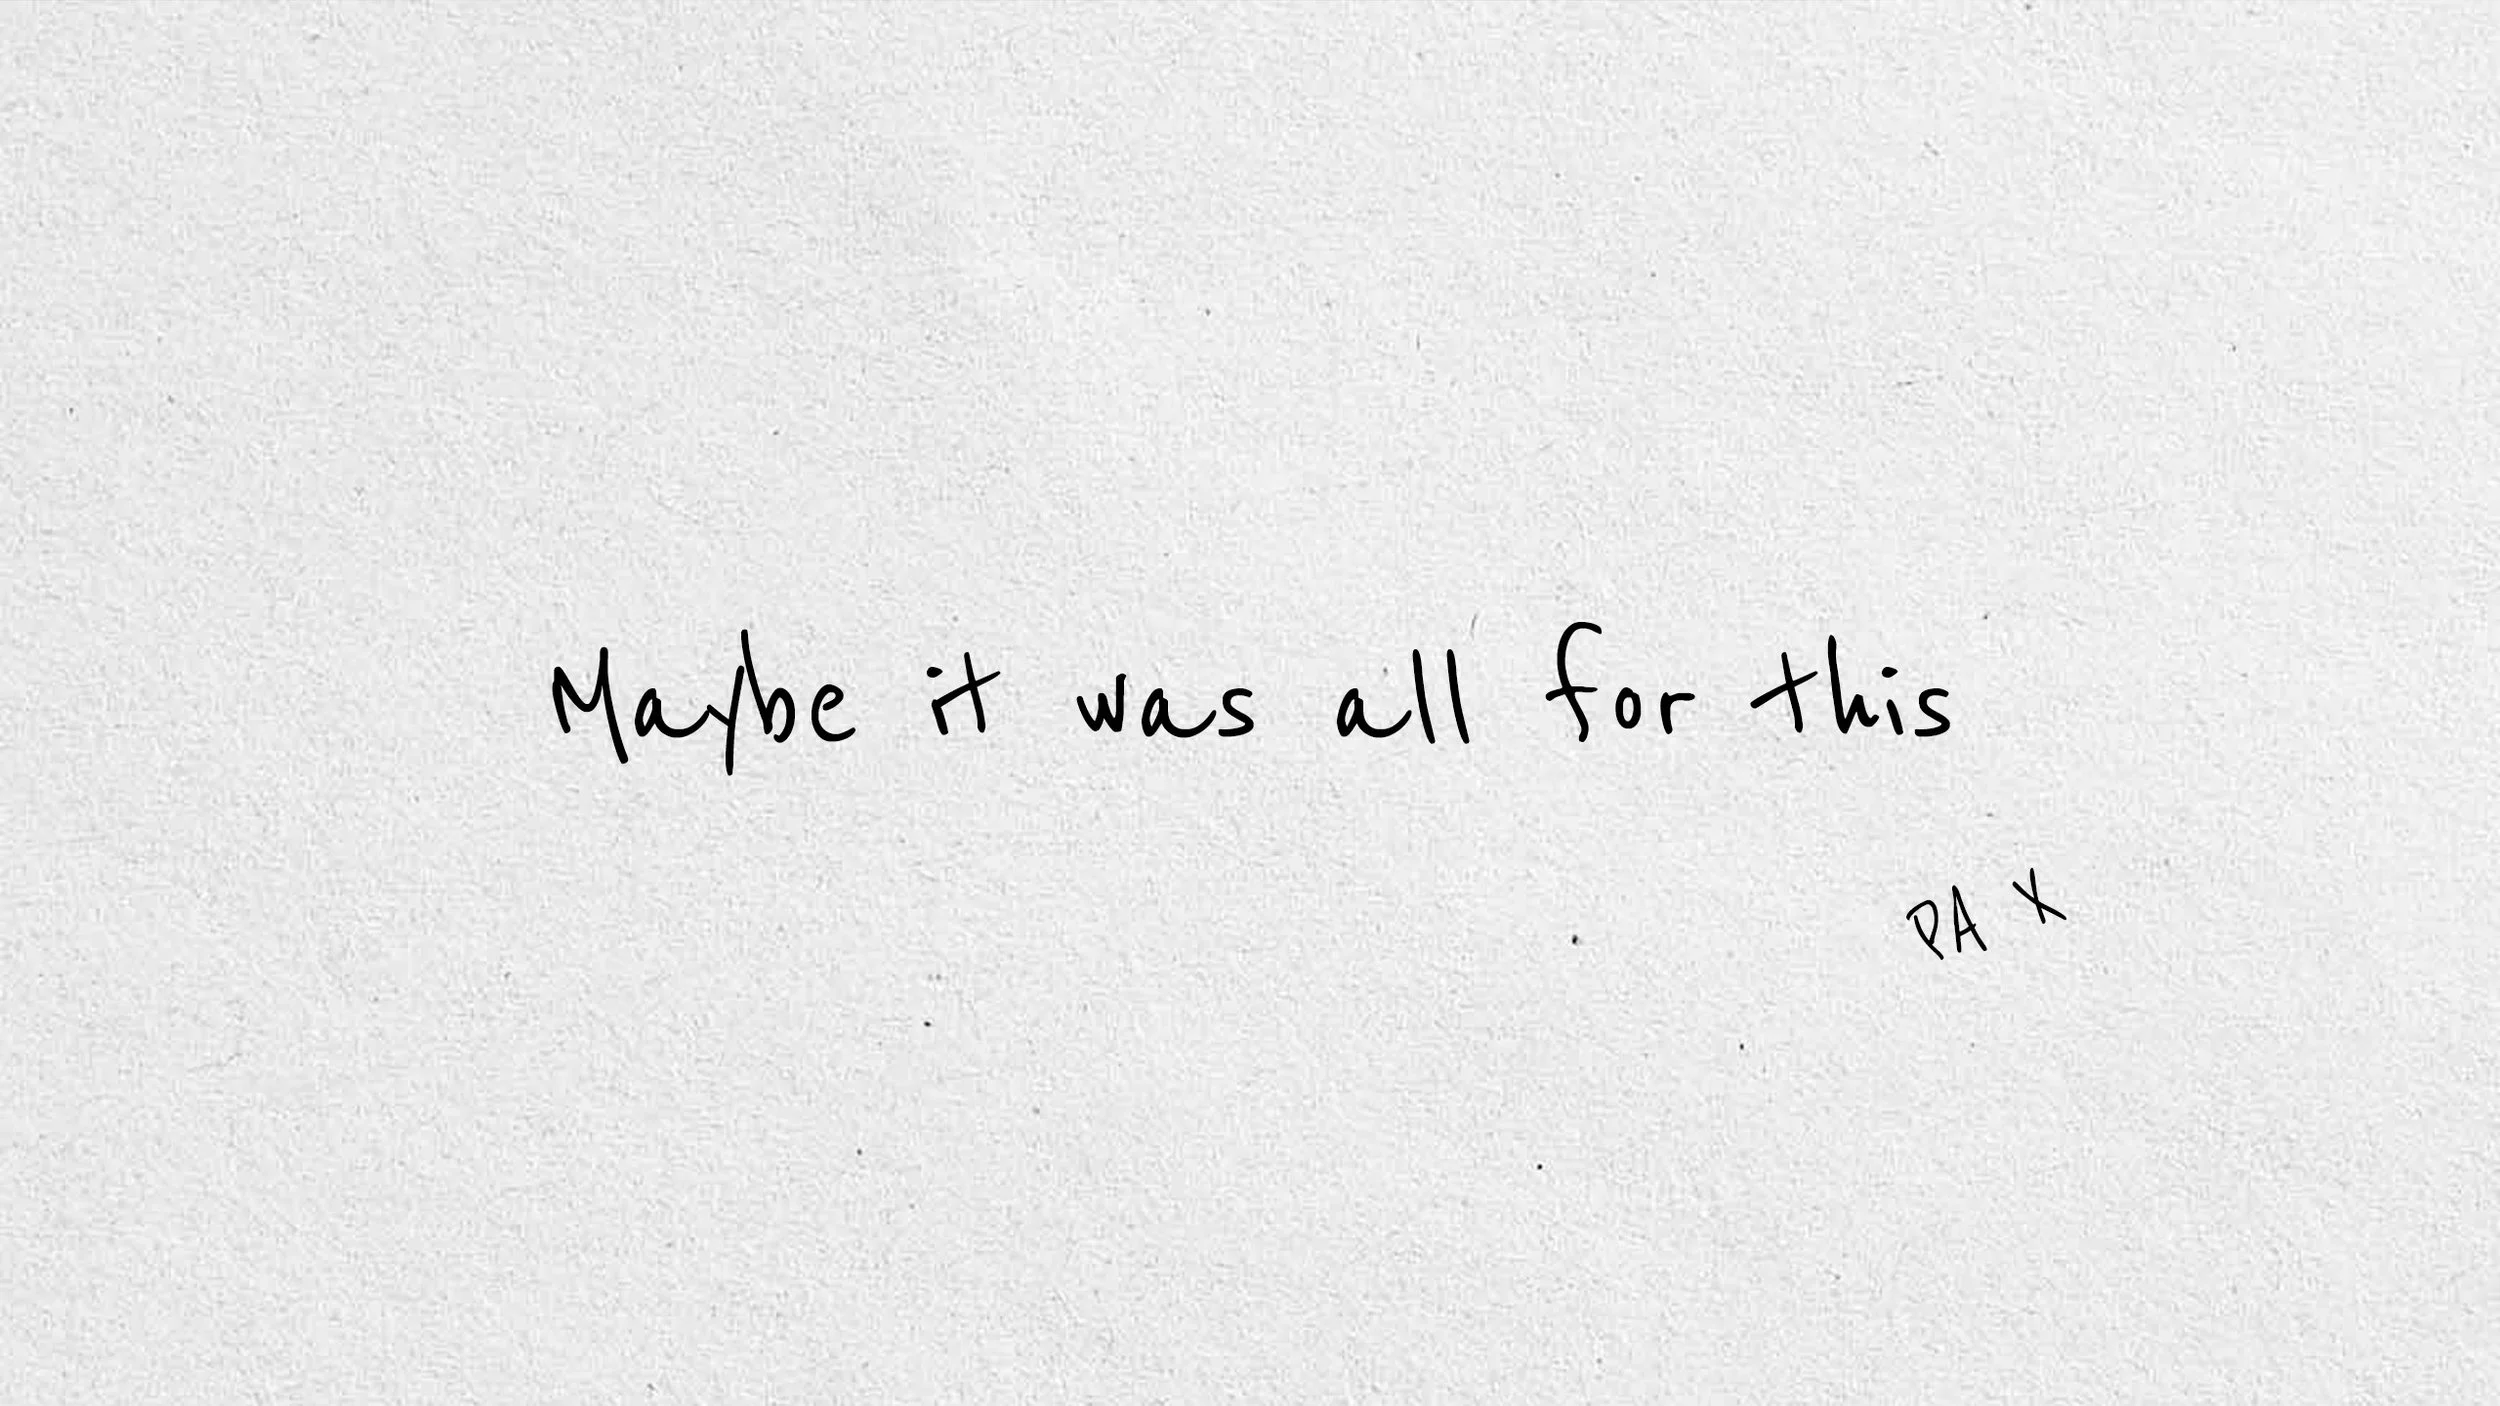 Maybe it was all for this
PA X